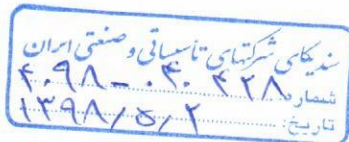 سندیکای شرکتهای تأسیساتی و صنعتی ایران
شماره ۴۰۹۸-۰۳۰۴۲۸
تاریخ: ۱۳۹۸/۵/۲